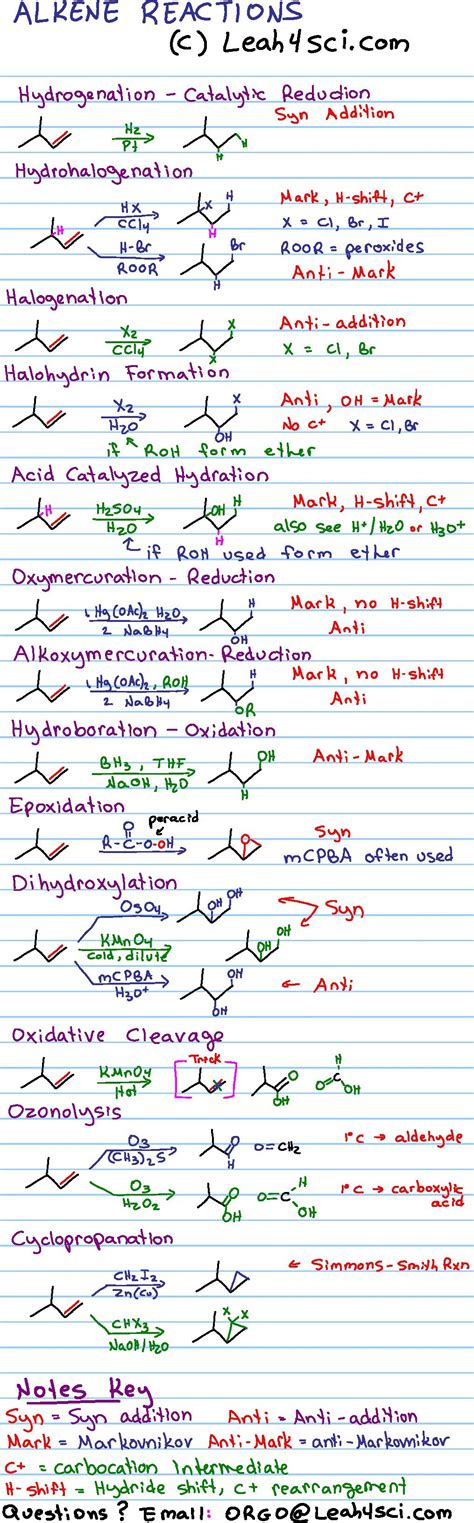 ALKENE REACTIONS
(C) Leah4Sci.com
Hydrogenation - Catalytic Reduction
Syn Addition
H₂
Pt
H
H
Hydrohalogenation
H
HX
CCl₄
X
H
H
Mark, H-shift, C+
X = Cl, Br, I
H-Br
ROOR
Br
H
ROOR = peroxides
Anti-Mark
Halogenation
X₂
CCl₄
X
X
Anti-addition
X = Cl, Br
Halohydrin Formation
X₂
H₂O
X
OH
Anti, OH = Mark
No C+ X = Cl, Br
if ROH form ether
Acid Catalyzed Hydration
H
H₂SO₄
H₂O
OH
H
H
Mark, H-shift, C+
also see H⁺/H₂O or H₃O⁺
if ROH used form ether
Oxymercuration - Reduction
1 Hg(OAc)₂ H₂O
2 NaBH₄
H
OH
Mark, no H-shift
Anti
Alkoxymercuration-Reduction
1 Hg(OAc)₂, ROH
2 NaBH₄
H
OR
Mark, no H-shift
Anti
Hydroboration - Oxidation
BH₃, THF
NaOH, H₂O
OH
H
Anti-Mark
Epoxidation
peracid
O
R-C-O-OH
O
Syn
mCPBA often used
Dihydroxylation
OsO₄
OH
OH
Syn
KMnO₄
cold, dilute
OH
OH
mCPBA
H₃O⁺
OH
OH
Anti
Oxidative Cleavage
KMnO₄
Hot
Trick
O
OH
H
O=C
OH
Ozonolysis
O₃
(CH₃)₂S
O
H
O=CH₂
1°C → aldehyde
O₃
H₂O₂
O
OH
O=C
H
OH
1°C → carboxylic
acid
Cyclopropanation
CH₂I₂
Zn(Cu)
← Simmons-Smith Rxn
CHX₃
NaOH/H₂O
X X
Notes Key
Syn = Syn addition Anti = Anti-addition
Mark = Markovnikov Anti-Mark = anti-Markovnikov
C+ = carbocation Intermediate
H-shift = Hydride shift, C+ rearrangement
Questions? Email: ORGO@Leah4sci.com